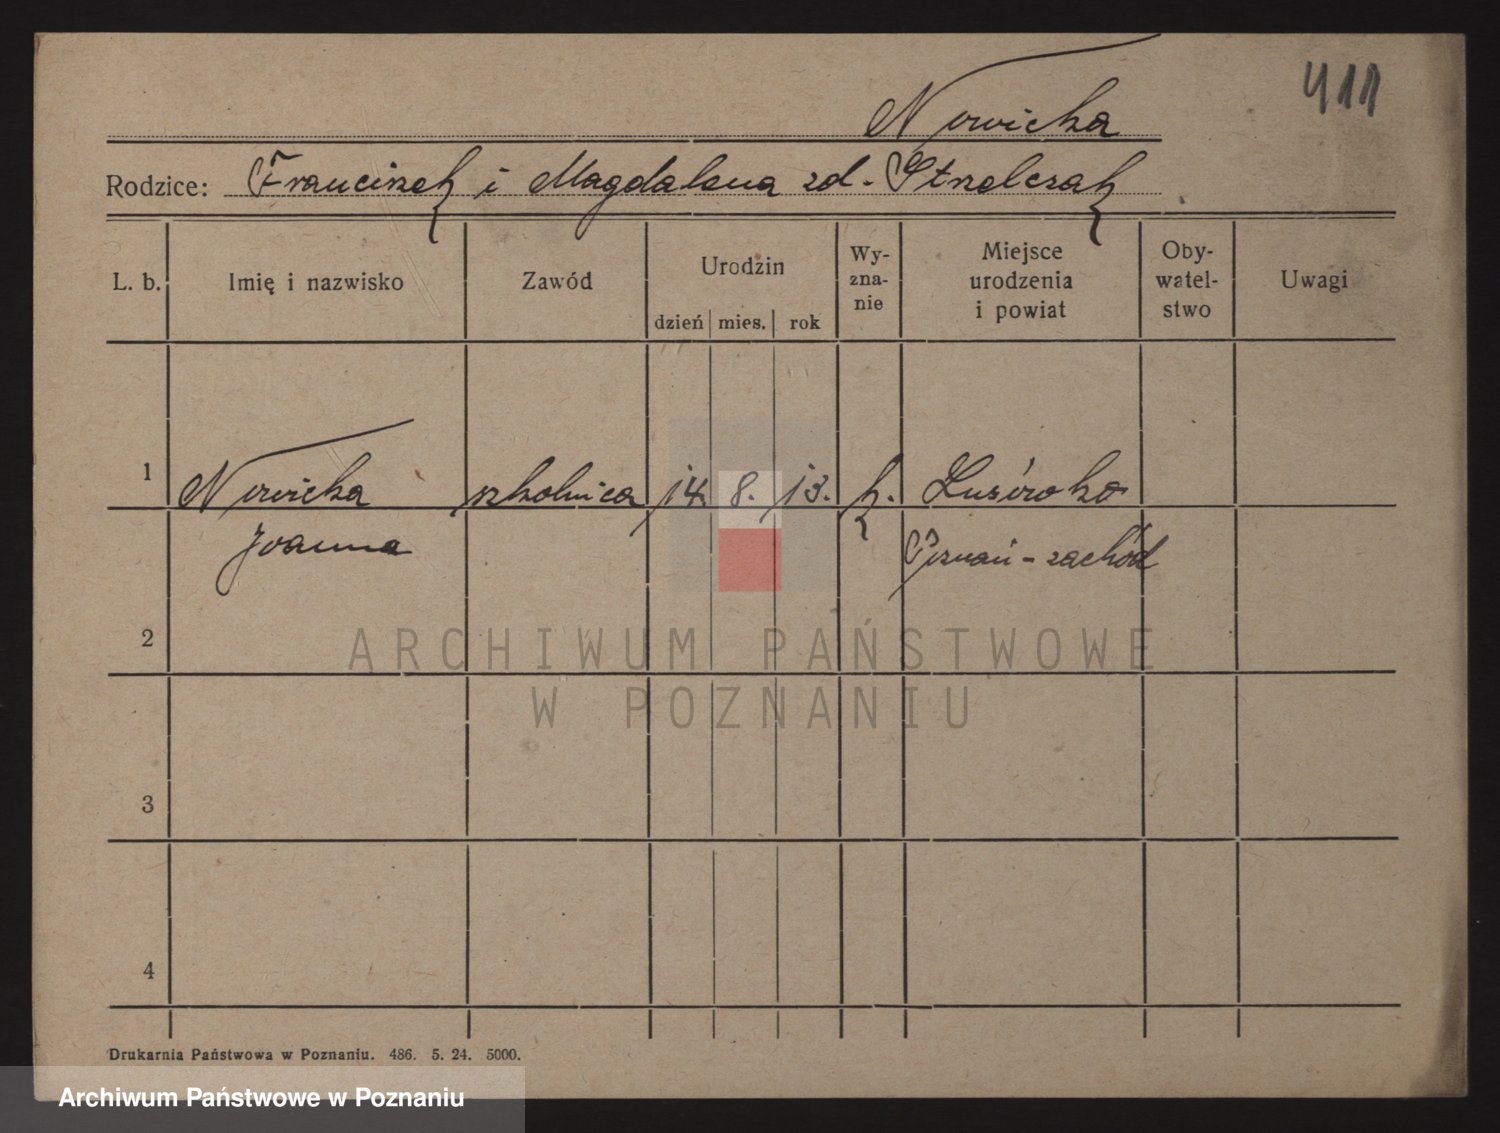 411
Nowicka
Rodzice: Franciszek i Magdalena zd. Strzelczak
L. b. Imię i nazwisko Zawód Urodzin dzień mies. rok Wyznanie Miejsce urodzenia i powiat Obywatelstwo Uwagi
1 Nowicka szkolnica 14. 8. 13. k. Lusówko
Joanna Poznań-zachód
2
ARCHIWUM PAŃSTWOWE
W POZNANIU
3
4
Drukarnia Państwowa w Poznaniu. 486. 5. 24. 5000.
Archiwum Państwowe w Poznaniu